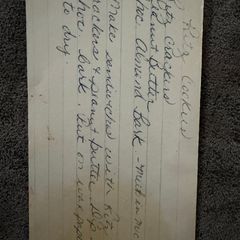 Ritz Cookies
Ritz Crackers
Peanut Butter
Choc Almond Bark - melt in mic
Make sandwiches with Ritz
crackers & peanut butter. Dip
choc. bark. Put on wax paper
to dry.